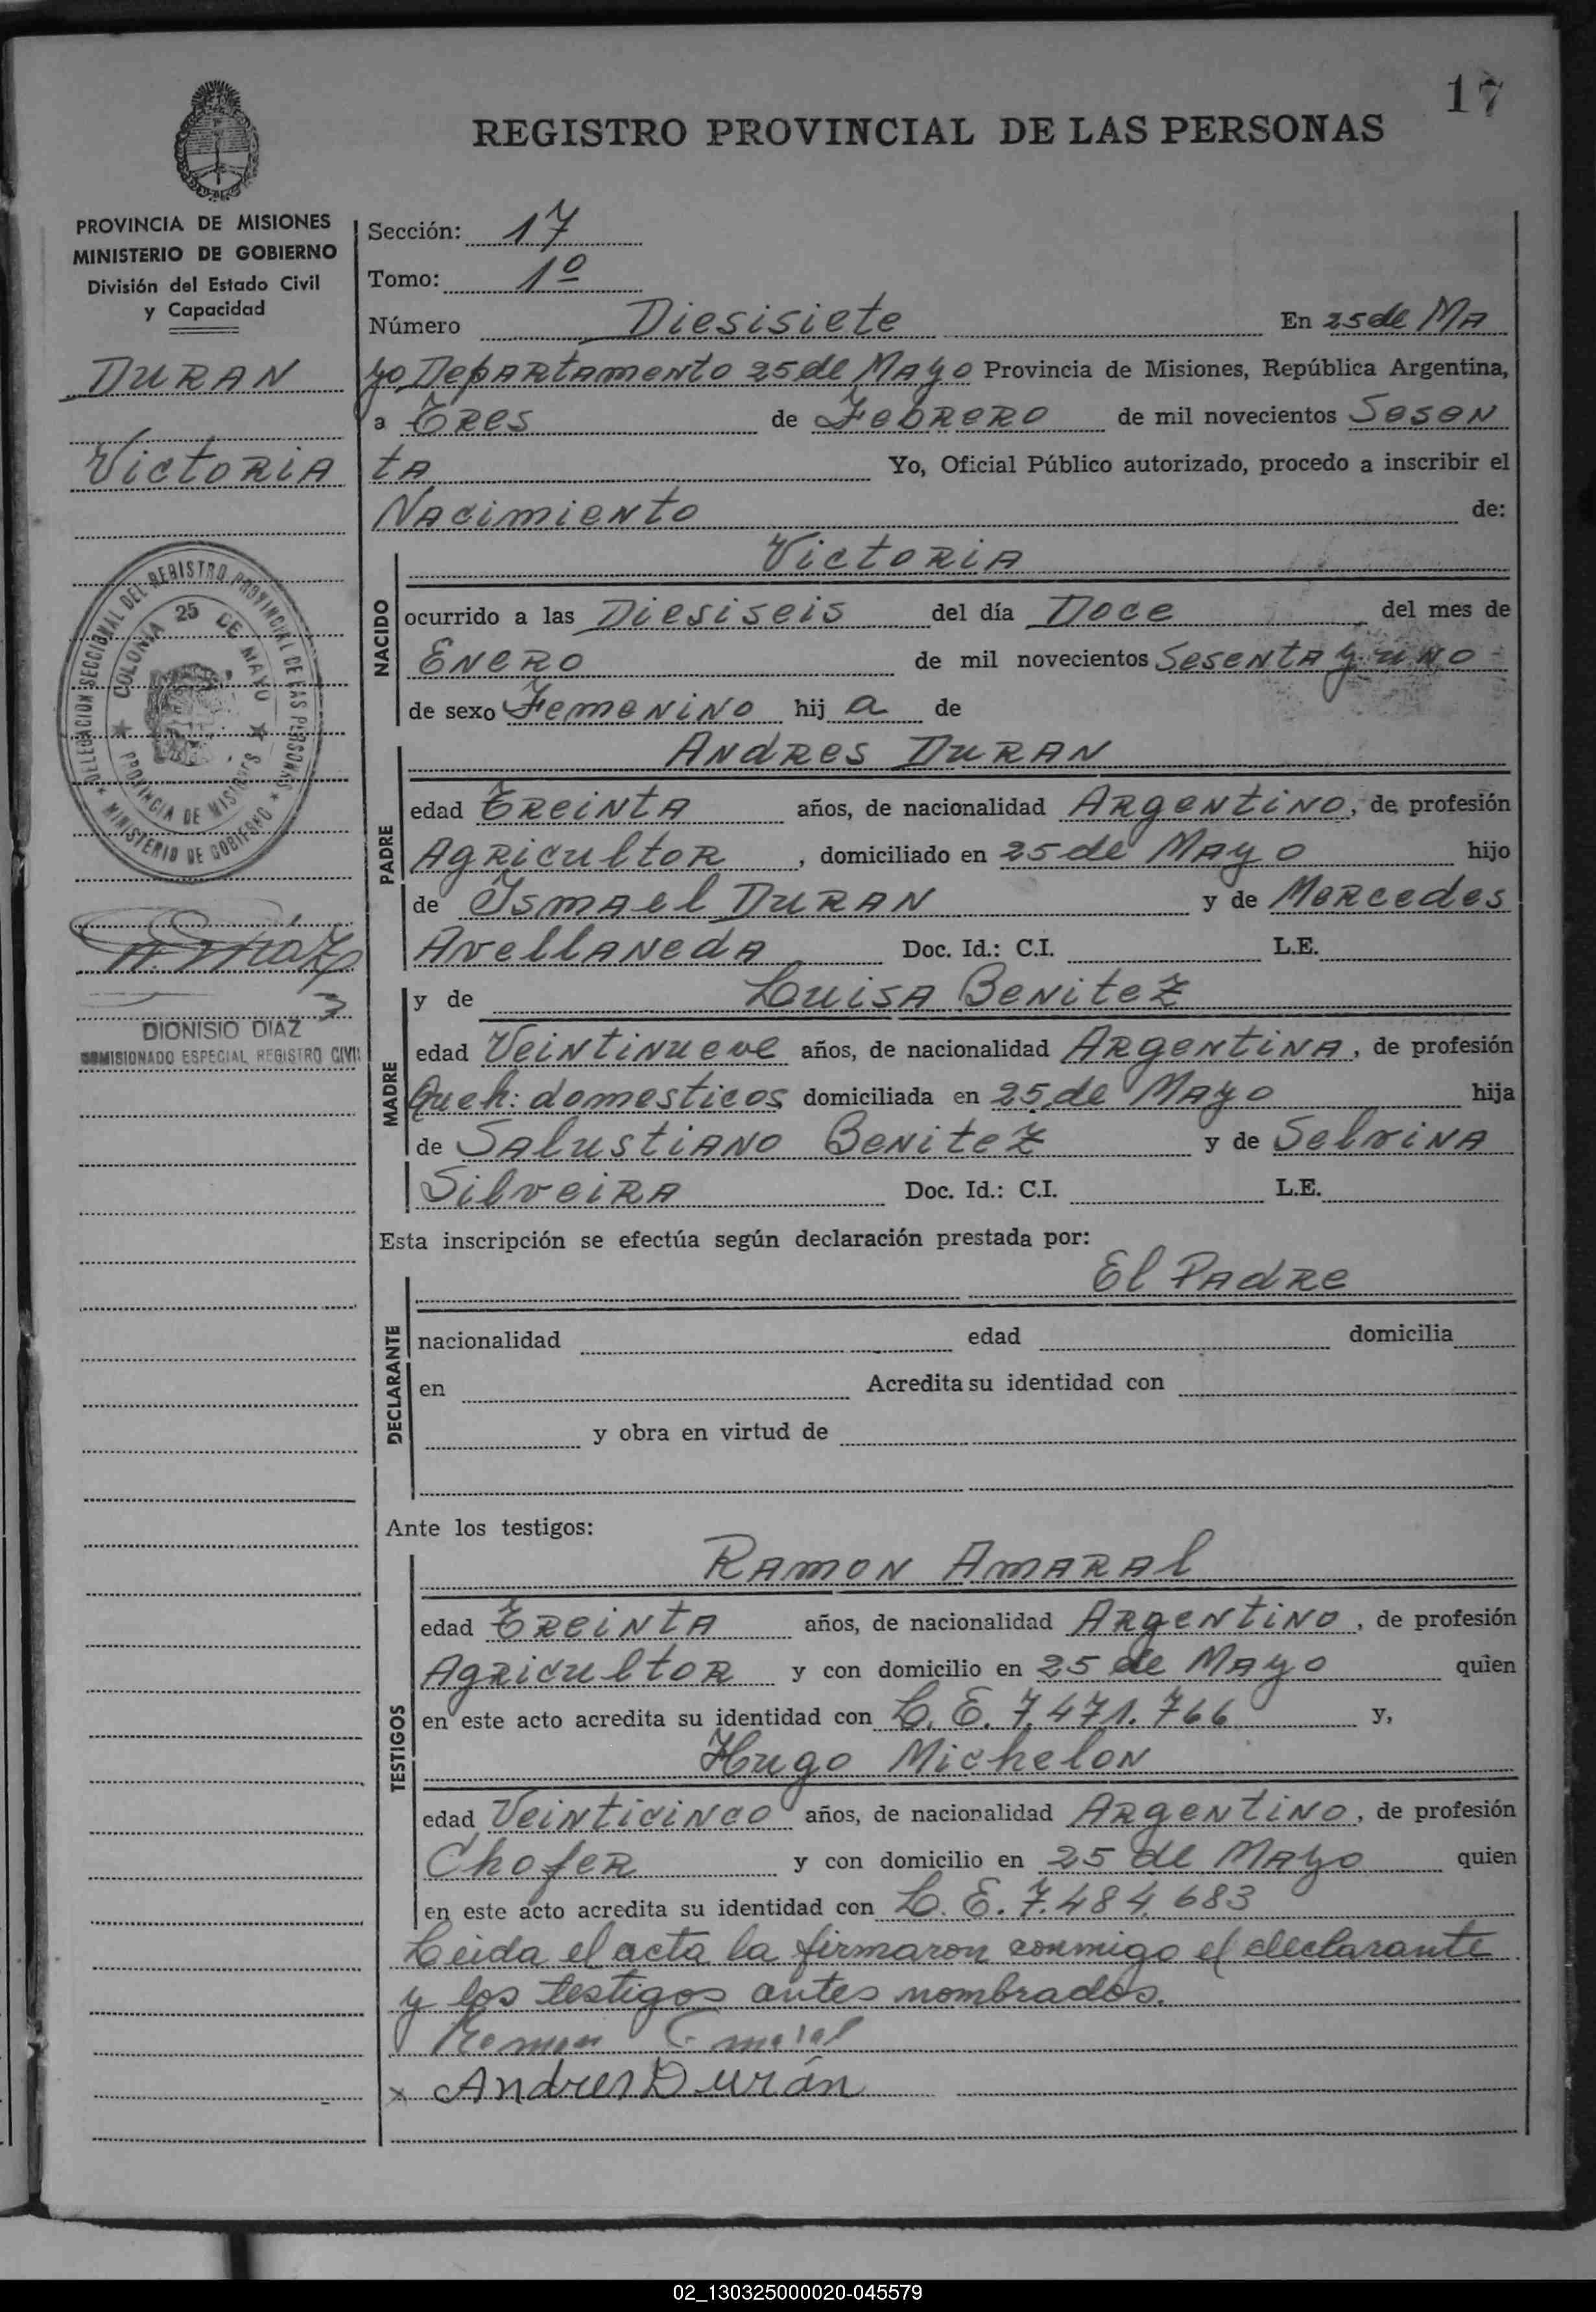 17
REGISTRO PROVINCIAL DE LAS PERSONAS
PROVINCIA DE MISIONES
MINISTERIO DE GOBIERNO
División del Estado Civil
y Capacidad
DURAN
Victoria
DELEGACION SECCIONAL DEL REGISTRO PROVINCIAL DE LAS PERSONAS
★ MINISTERIO DE GOBIERNO ★
COLONIA 25 DE MAYO
★ PROVINCIA DE MISIONES ★
DIONISIO DIAZ
COMISIONADO ESPECIAL REGISTRO CIVIL
Sección: 17
Tomo: 1º
Número Diesisiete En 25 de Ma
yo Departamento 25 de Mayo Provincia de Misiones, República Argentina,
a Tres de Febrero de mil novecientos Sesen
ta Yo, Oficial Público autorizado, procedo a inscribir el
Nacimiento de:
NACIDO
Victoria
ocurrido a las Diesiseis del día Doce del mes de
Enero de mil novecientos Sesenta y uno
de sexo Femenino hij a de
PADRE
Andres Duran
edad Treinta años, de nacionalidad Argentino, de profesión
Agricultor, domiciliado en 25 de Mayo hijo
de Ismael Duran y de Mercedes
Avellaneda Doc. Id.: C.I. L.E.
MADRE
y de Luisa Benitez
edad Veintinueve años, de nacionalidad Argentina, de profesión
Queh: domesticos domiciliada en 25 de Mayo hija
de Salustiano Benitez y de Selvina
Silveira Doc. Id.: C.I. L.E.
Esta inscripción se efectúa según declaración prestada por:
El Padre
DECLARANTE
nacionalidad edad domicilia
en Acredita su identidad con
y obra en virtud de
Ante los testigos:
TESTIGOS
Ramon Amaral
edad Treinta años, de nacionalidad Argentino, de profesión
Agricultor y con domicilio en 25 de Mayo quien
en este acto acredita su identidad con L. E. 7.471.766 y,
Hugo Michelon
edad Veinticinco años, de nacionalidad Argentino, de profesión
Chofer y con domicilio en 25 de Mayo quien
en este acto acredita su identidad con L. E. 7.484.683
Leida el acta la firmaron conmigo el declarante
y los testigos antes nombrados.
x Andres Durán
02_130325000020-045579